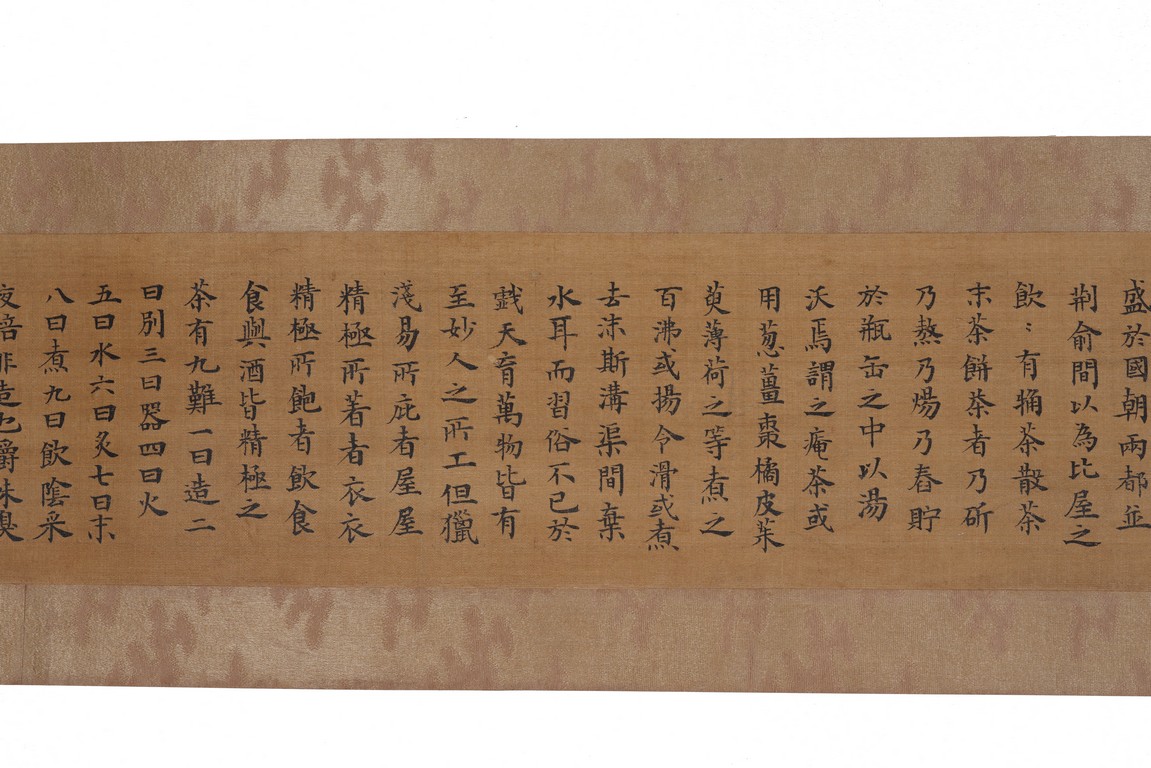 盛於國朝兩都並
荆俞間以為比屋之
飲〻有觕茶散茶
末茶餅茶者乃斫
乃熬乃煬乃舂貯
於瓶缶之中以湯
沃焉謂之庵茶或
用葱薑棗橘皮茱
萸薄荷之等煮之
百沸或揚令滑或煮
去沫斯溝渠間棄
水耳而習俗不已於
戲天育萬物皆有
至妙人之所工但獵
淺易所庇者屋屋
精極所著者衣衣
精極所飽者飲食
食與酒皆精極之
茶有九難一曰造二
曰別三曰器四曰火
五曰水六曰炙七曰末
八曰煮九曰飲陰采
夜焙非造也嚼味嗅